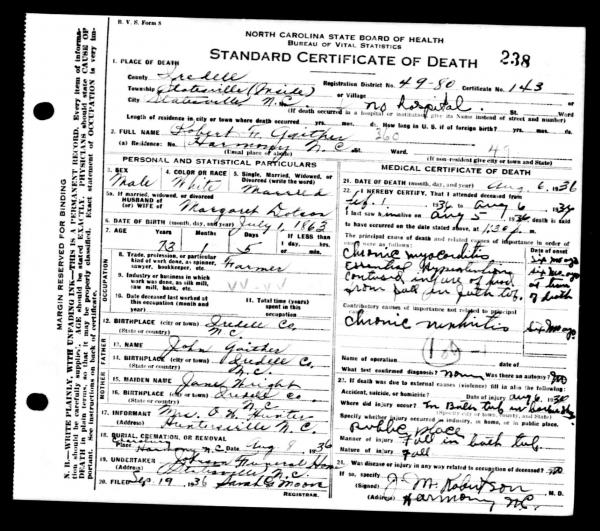 B. V. S. Form 8
NORTH CAROLINA STATE BOARD OF HEALTH
BUREAU OF VITAL STATISTICS
STANDARD CERTIFICATE OF DEATH
238
1. PLACE OF DEATH
County Iredell Registration District No. 49-80 Certificate No. 143
Township Statesville (Inside) or Village
City Statesville N.C. No. no hospital. St. Ward
(If death occurred in a hospital or institution, give its Name instead of street and number)
Length of residence in city or town where death occurred yrs. mos. ds. How long in U. S. if of foreign birth? yrs. mos. ds.
2. FULL NAME Robert W. Gaither
(a) Residence: No. Harmony N.C. St. Ward. 49
(Usual place of abode) (If non-resident give city or town and State)
PERSONAL AND STATISTICAL PARTICULARS
3. SEX 4. COLOR OR RACE 5. Single, Married, Widowed, or Divorced (write the word)
Male White Married
5a. If married, widowed, or divorced
HUSBAND of
(or) WIFE of Margaret Dotson
6. DATE OF BIRTH (month, day, and year) July 1, 1863
7. AGE Years Months Days If LESS than 1 day, hrs. or min.
73 1 5
OCCUPATION
8. Trade, profession, or particular kind of work done, as spinner, sawyer, bookkeeper, etc. Farmer
9. Industry or business in which work was done, as silk mill, saw mill, bank, etc.
10. Date deceased last worked at this occupation (month and year)
11. Total time (years) spent in this occupation
12. BIRTHPLACE (city or town) Iredell Co.
(State or country) N.C.
FATHER
13. NAME John Gaither
14. BIRTHPLACE (city or town) Iredell Co.
(State or country) N.C.
MOTHER
15. MAIDEN NAME Jane Wright
16. BIRTHPLACE (city or town) Iredell Co
(State or country) N.C.
17. INFORMANT Mrs. Hunter
(Address) Huntersville N.C.
18. BURIAL, CREMATION, OR REMOVAL
Place Harmony N.C. Date Aug 9, 1936
19. UNDERTAKER Johnson Funeral Home
(Address) Statesville N.C.
20. FILED Sep 19 1936 Sarah G. Moore
REGISTRAR.
MEDICAL CERTIFICATE OF DEATH
21. DATE OF DEATH (month, day, and year) Aug 6, 1936
22. I HEREBY CERTIFY, That I attended deceased from
Feb. 1, 1936 to Aug 6, 1936
I last saw him alive on Aug 5, 1936 death is said
to have occurred on the date stated above, at 1:30 p. m.
The principal cause of death and related causes of importance in order of onset were as follows: Date of onset
Chronic myocarditis six mo ago
six mo ago
at time
from fall in bath tub. of death
Contributory causes of importance not related to principal cause:
Chronic nephritis six mo ago
Name of operation date of
What test confirmed diagnosis? None Was there an autopsy? no
23. If death was due to external causes (violence) fill in also the following:
Accident, suicide, or homicide? Date of injury Aug 6, 1936
Where did injury occur? In Bath tub in
(Specify city or town, county, and State)
Specify whether injury occurred in industry, in home, or in public place.
public place
Manner of injury Fall in bath tub.
Nature of injury Fall
24. Was disease or injury in any way related to occupation of deceased? no
If so, specify
(Signed) J. M. Robertson M. D.
(Address) Harmony, N.C.
MARGIN RESERVED FOR BINDING
N. B.—WRITE PLAINLY, WITH UNFADING INK—THIS IS A PERMANENT RECORD. Every item of information should be carefully supplied. AGE should be stated EXACTLY. PHYSICIANS should state CAUSE OF DEATH in plain terms, so that it may be properly classified. Exact statement of OCCUPATION is very important. See instructions on back of certificate.